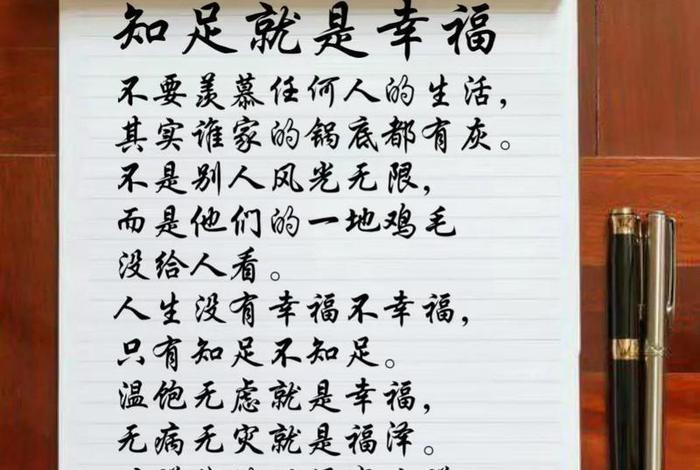 知足就是幸福
不要羡慕任何人的生活，
其实谁家的锅底都有灰。
不是别人风光无限，
而是他们的一地鸡毛
没给人看。
人生没有幸福不幸福，
只有知足不知足。
温饱无虑就是幸福，
无病无灾就是福泽。